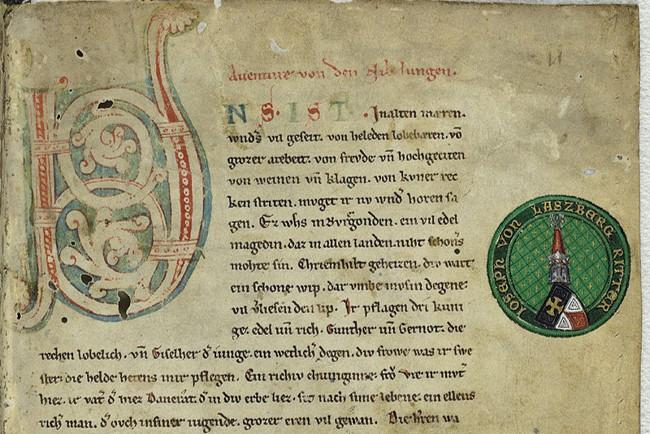 Auenture von den Nibelungen.
VNS. IST. Jn alten mæren.
wnd͛s vil geseit. von heleden lobebæren. võ
grozer arebeit. von frevde vñ hochgeciten
von weinen vñ klagen. von kvner rec
ken striten. mvget ir nv wnd͛ horen sa
gen. Ez whs in Bvrgonden. ein vil edel
magedin. daz in allen landen. niht schoners
mohte sin. Chriemhilt geheizen. div wart
ein schone wip. dar vmbe mvsin degene.
vil vliesen den lip. Ir pflagen dri kuni
ge. edel vñ rich. Gunther vñ Gernot. die
rechen lobelich. vñ Giselher d͛ iunge. ein wetlich͛ degen. div frowe was ir swe
ster. die helde hetens inir pflegen. Ein richiv chuniginne. frō vte ir mvt͛
hiez. ir vat͛ d͛ hiez Dancrat. d͛ in div erbe liez. sit nach sime lebene. ein ellens
rich͛ man. d͛ ovch in siner iugende. grozer eren vil gewan. Die h͛ren wa
IOSEPH VON LASZBERG RITTER